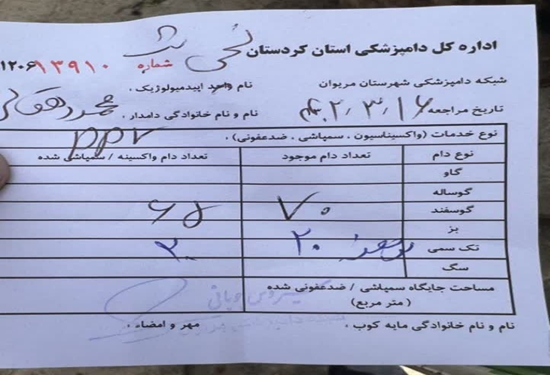 اداره کل دامپزشکی استان کردستان
شماره ۱۳۹۱۰ ۱۲۰۶
شبکه دامپزشکی شهرستان مریوان
نام واحد اپیدمیولوژیک .
تاریخ مراجعه ۴۰۲،۳،۱۶
نام و نام خانوادگی دامدار . محمد
نوع خدمات (واکسیناسیون ، سمپاشی ، ضدعفونی) . ppr
نوع دام تعداد دام موجود تعداد دام واکسینه / سمپاشی شده
گاو
گوساله
گوسفند ۷۰ ۶۵
بز
تک سمی ۲۰ ۲۰
سگ
مساحت جایگاه سمپاشی / ضدعفونی شده
( متر مربع )
نام و نام خانوادگی مایه کوب . مهر و امضاء .